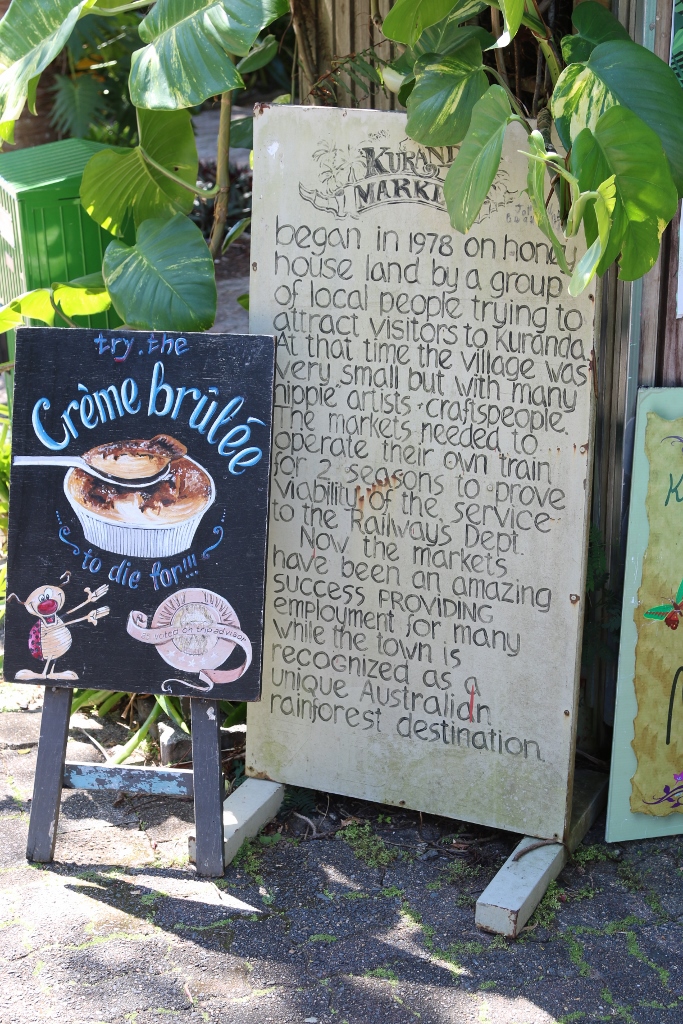 try the
Crème brûlée
to die for!!!
as voted on tripadvisor
KURAN
MARKE
began in 1978 on hone
house land by a group
of local people trying to
attract visitors to Kuranda.
At that time the village was
very small but with many
hippie artists + craftspeople.
The markets needed to
operate their own train
for 2 seasons to prove
viability of the service
to the Railways Dept.
Now the markets
have been an amazing
success PROVIDING
employment for many
while the town is
recognized as a
unique Australian
rainforest destination.
K